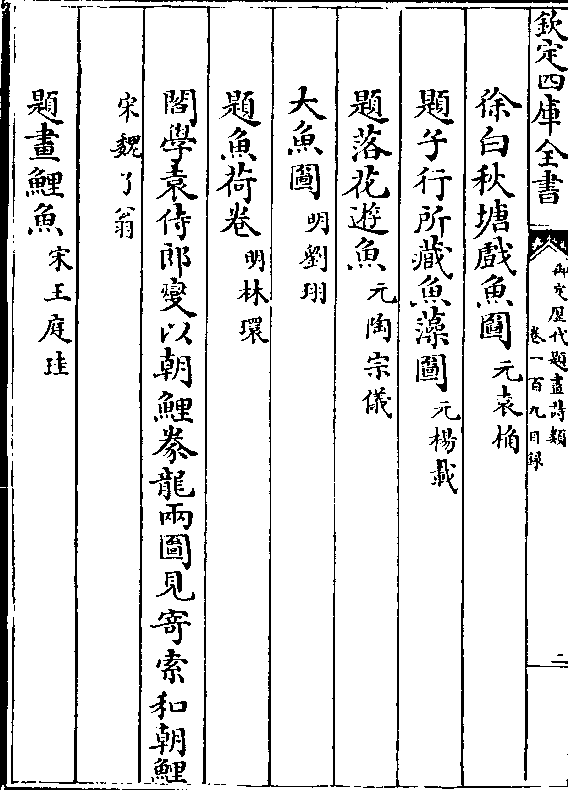 欽定四庫全書
御定歷代題畫詩類
卷一百九目録
二
徐白秋塘戲魚圖元袁桷
題子行所藏魚藻圖元楊載
題落花遊魚元陶宗儀
大魚圖明劉珝
題魚荷卷明林環
閣學袁侍郎燮以朝鯉豢龍兩圖見寄索和朝鯉
宋魏了翁
題畫鯉魚宋王庭珪